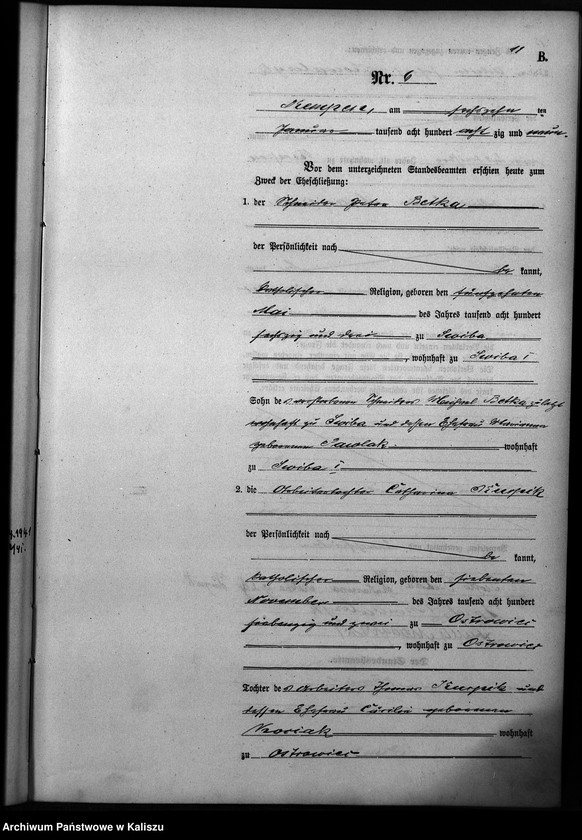 11
B.
Nr. 6
Kempen, am sechszehn ten
Januar tausend acht hundert acht zig und neun.
Vor dem unterzeichneten Standesbeamten erschien heute zum
Zweck der Eheschließung:
1. der Schneider Peter Betka,
der Persönlichkeit nach
be kannt,
katholischer Religion, geboren den fünfzehnten
Mai des Jahres tausend acht hundert
sechzig und drei zu Swiba
, wohnhaft zu Swiba I
Sohn des verstorbenen Schneiders Michael Betka zuletzt
wohnhaft zu Swiba und dessen Ehefrau Marianna
geborenen Smolak wohnhaft
zu Swiba I
2. die Arbeitertochter Catharina
der Persönlichkeit nach
be kannt,
katholischer Religion, geboren den siebenten
November des Jahres tausend acht hundert
siebenzig und zwei zu Ostrowiec
, wohnhaft zu Ostrowiec
Tochter des Arbeiters Thomas und
dessen Ehefrau Cäcilie geborenen
wohnhaft
zu Ostrowiec
Archiwum Państwowe w Kaliszu